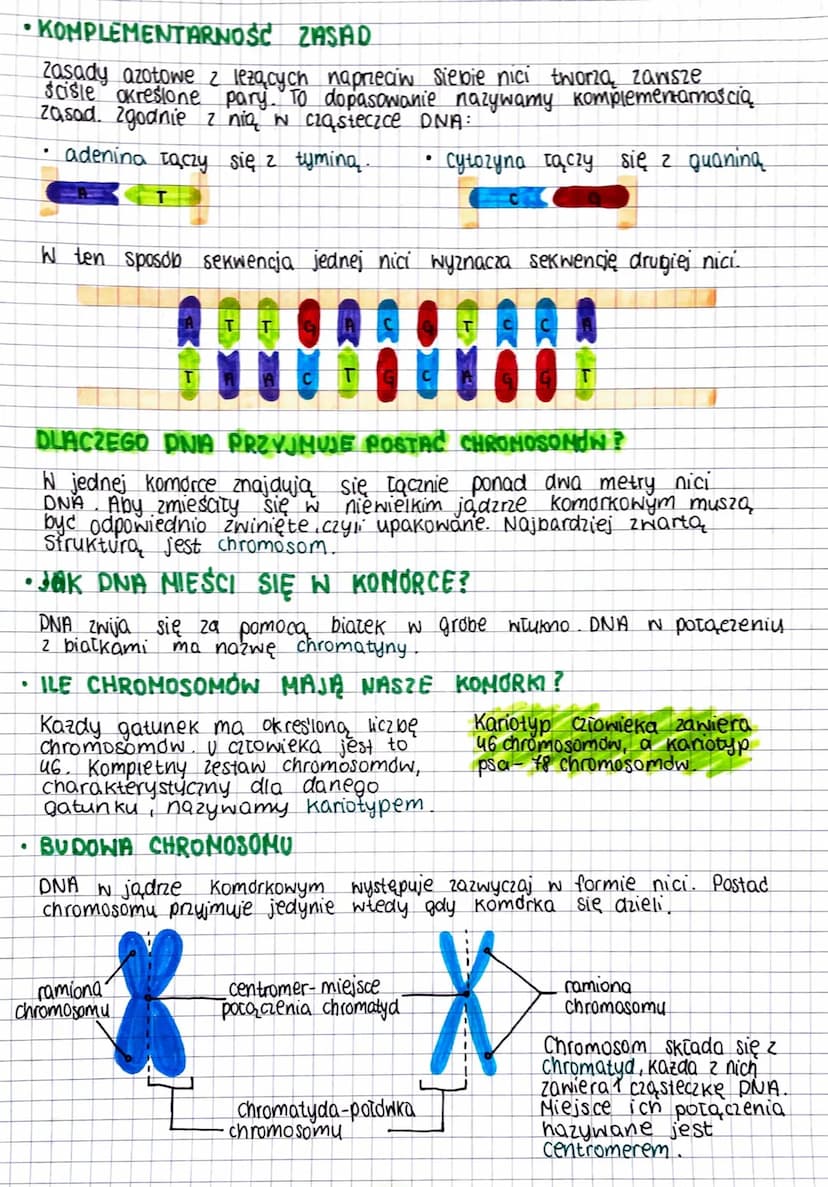 • KOMPLEMENTARNOŚĆ ZASAD
Zasady azotowe z leżących naprzeciw siebie nici tworzą zawsze
ściśle określone pary. To dopasowanie nazywamy komplementarnością
zasad. Zgodnie z nią w cząsteczce DNA:
• adenina łączy się z tyminą.
• cytozyna łączy się z guaniną
A T
C G
W ten sposób sekwencja jednej nici wyznacza sekwencję drugiej nici.
A T T G A C G T C C A
T A A C T G C A G G T
DLACZEGO DNA PRZYJMUJE POSTAĆ CHROMOSOMÓW?
W jednej komórce znajdują się łącznie ponad dwa metry nici
DNA. Aby zmieściły się w niewielkim jądrze komórkowym muszą
być odpowiednio zwinięte, czyli upakowane. Najbardziej zwartą
strukturą jest chromosom.
• JAK DNA MIEŚCI SIĘ W KOMÓRCE?
DNA zwija się za pomocą białek w grube włukno. DNA w połączeniu
z białkami ma nazwę chromatyny.
• ILE CHROMOSOMÓW MAJĄ NASZE KOMÓRKI?
Każdy gatunek ma określoną liczbę
chromosomów. U człowieka jest to
46. Kompletny zestaw chromosomów,
charakterystyczny dla danego
gatunku, nazywamy kariotypem.
Kariotyp człowieka zawiera
46 chromosomów, a kariotyp
psa- 78 chromosomów.
• BUDOWA CHROMOSOMU
DNA w jądrze komórkowym występuje zazwyczaj w formie nici. Postać
chromosomu przyjmuje jedynie wtedy gdy komórka się dzieli.
ramiona
chromosomu
centromer- miejsce
połączenia chromatyd
ramiona
chromosomu
chromatyda-połówka
chromosomu
Chromosom składa się z
chromatyd, każda z nich
zawiera 1 cząsteczkę DNA.
Miejsce ich połączenia
nazywane jest
centromerem.